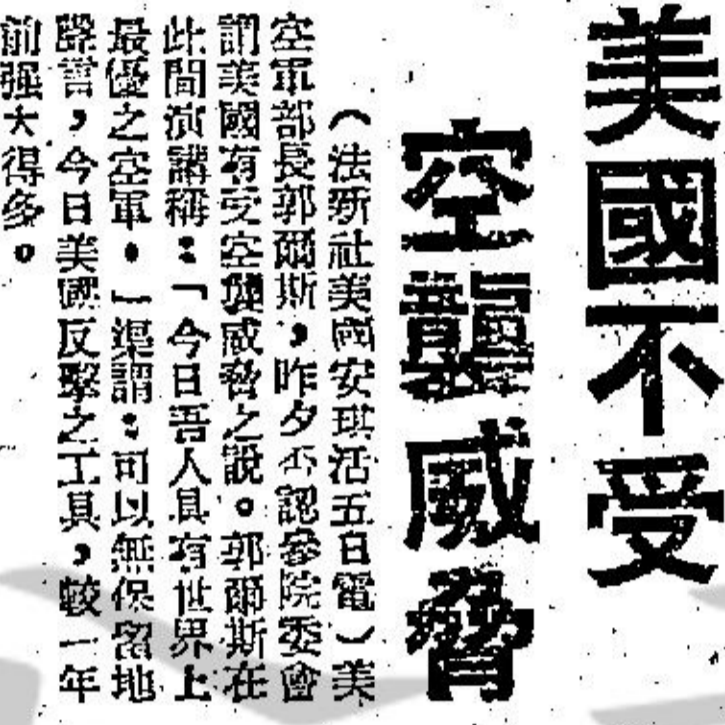 美國不受
空襲威脅
（法新社美國安琪活五日電）美
空軍部長郭爾斯，昨夕不認參院委會
謂美國有受空襲威脅之說。郭爾斯在
此間演講稱：「今日吾人具有世界上
最優之空軍。」渠謂：可以無保留地
聲言，今日美國反擊之工具，較一年
前强大得多。